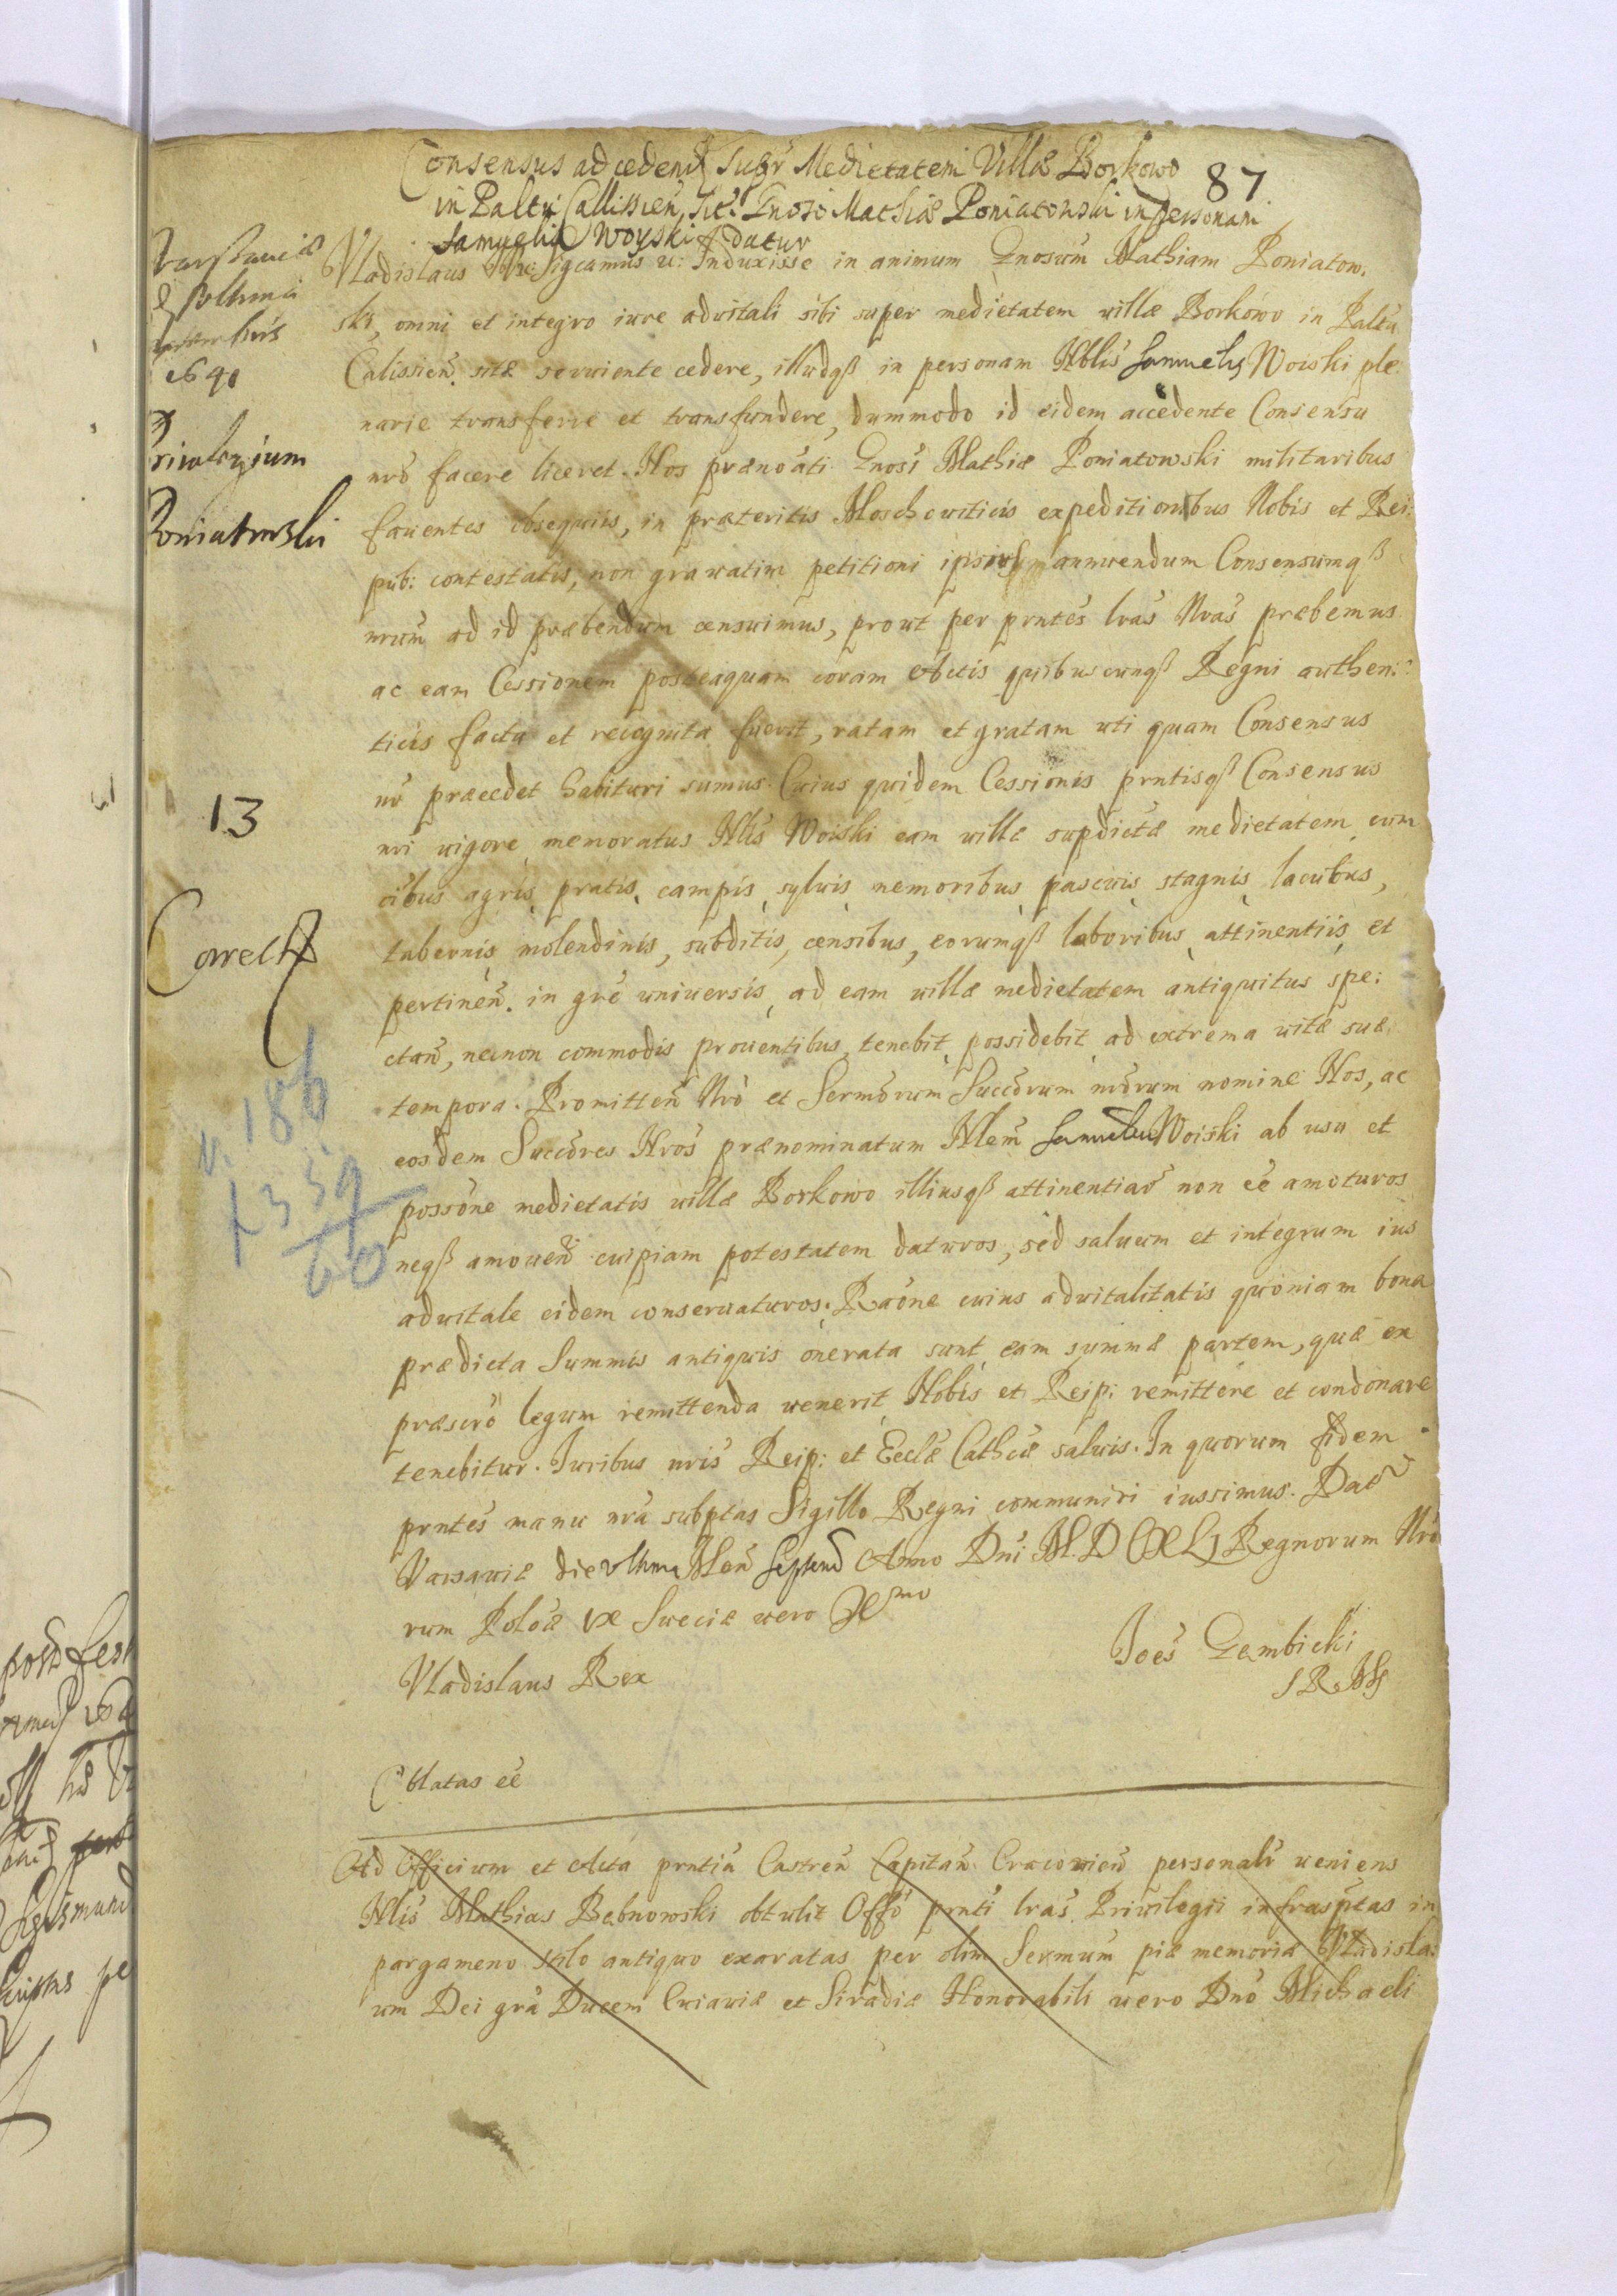 Consensus ad cedend Supr Medietatem Villæ Borkowo
87
in Paltu Callissien, sit: Gnosi Mathiæ Poniatowski in personam
Samuelis Woyski datur
Varssaviæ
13
Correct
Poniatowski
1640
v. 186
1359
60
Vladislaus Sigcamus u: Induxisse in animum Gnosum Mathiam Poniatow.
ski, omni et integro iure aduitali sibi super medietatem uillæ Borkowo in Paltu
Calissien. sitæ seruiente cedere, illudqß in personam Nblis Samuelis Woiski ple
narie transferre et transfundere, dummodo id eidem accedente Consensu
nro facere liceret. Nos prænoati Gnosi Mathiæ Poniatowski militaribus
fauentes obsequiis, in præteritis Moschouiticis expeditionibus Nobis et Rei:
pub: contestatis, non grauatim petitioni ipsius annuendum Consensumqß
nrum ad id præbendum censuimus, prout per prntes lras Nras præbemus
ac eam Cessionem posteaquam coram Actis quibuscunqß Regni authen:
ticis facta et recognita fuerit, ratam et gratam uti quam Consensus
nr præcedet habituri sumus. Cuius quidem Cessionis prntisqß Consensus
nri uigore memoratus Nlis Woiski eam uillæ supdictæ medietatem cum
oibus agris, pratis, campis, syluis, nemoribus, pascuis, stagnis, lacubus,
tabernis, molendinis, subditis, censibus, eorumqß laboribus, attinentiis et
pertinen. in gre uniuersis, ad eam uillæ medietatem antiquitus spe:
ctan, necnon commodis prouentibus, tenebit, possidebit ad extrema uitæ suæ
tempora. Promitten Nro et Sermorum Succorum nrorum nomine Nos, ac
eosdem Succores Nros prænominatum Nlem Samuelem Woiski ab usu et
possone medietatis uillæ Borkowo illiusqß attinentiar non ee amoturos
neqß amouen cuipiam potestatem daturos, sed saluum et integrum ius
aduitale eidem conseruaturos. Raone cuius aduitalitatis quoniam bona
prædicta Summis antiquis onerata sunt, eam summæ partem, quæ ex
præscro legum remittenda uenerit Nobis et Reip: remittere et condonare
tenebitur. Iuribus nris Reip: et Ecclæ Cathcæ saluis. In quorum fidem
prntes manu nra subptas Sigillo Regni communiri iussimus. Dat
Varsauiæ die vltima Men Septemb Anno Dni M.D CXLI Regnorum Nro
rum Polonæ IX Sueciæ uero Xmo
Vladislaus Rex
Joes Gembicki
SRMS
Oblatas ee
Ad Officium et Acta prntia Castren Capitan Cracouien personalr ueniens
Nlis Mathias Bebnowski obtulit Offo prnti lras Priuilegii infrasptas in
pargameno stilo antiquo exaratas per olim Sermum piæ memoriæ Vladisla:
um Dei gra Ducem Cuiauiæ et Siradiæ Honorabili uero Dno Michaeli